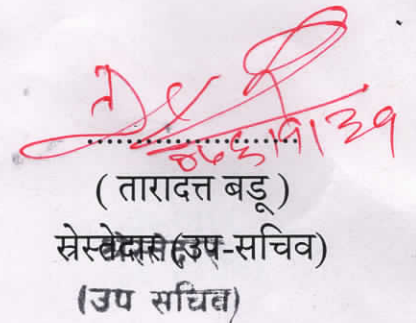 ( तारादत्त बडू )
स्रेस्तेदार (उप-सचिव)
(उप सचिव)